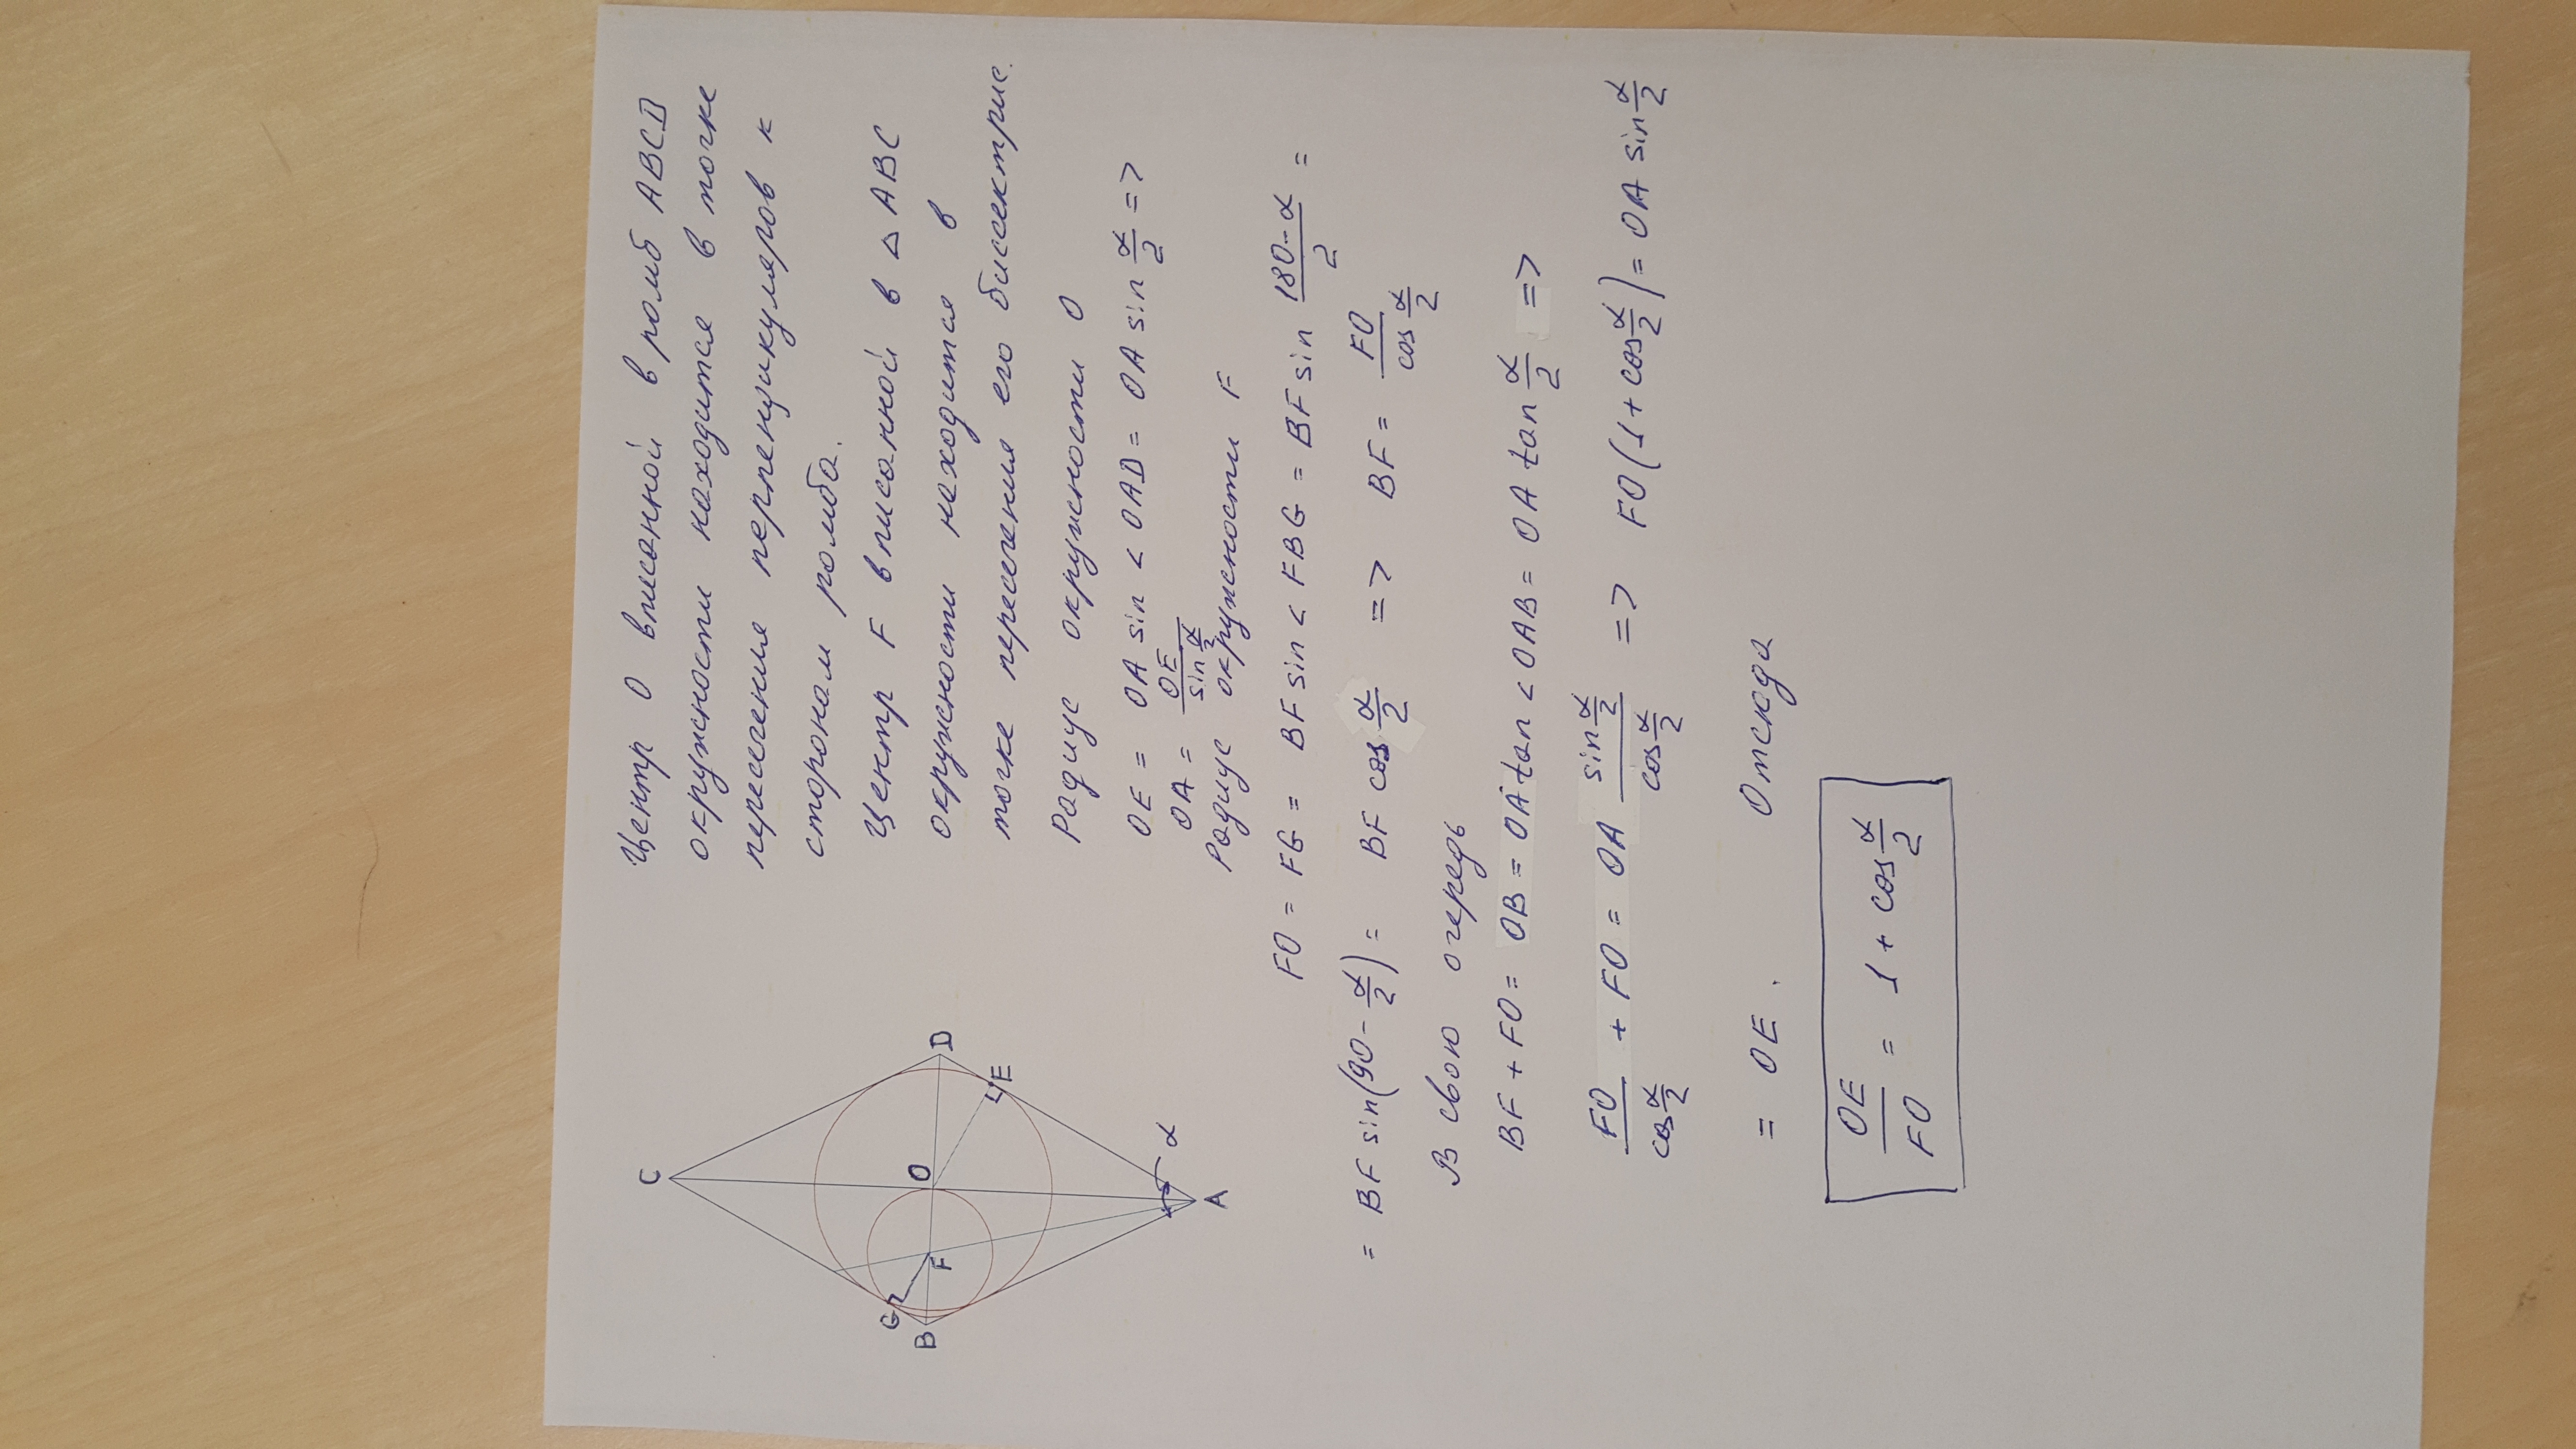 Центр O вписанной в ромб ABCD
окружности находится в точке
пересечения перпендикуляров к
сторонам ромба.
Центр F вписанной в △ ABC
окружности находится в
точке пересечения его биссектрис.
Радиус окружности O
OE = OA sin < OAD = OA sin α/2 =>
OA = OE/sin α/2
Радиус окружности F
FO = FG = BF sin < FBG = BF sin (180-α)/2 =
= BF sin(90 - α/2) = BF cos α/2 => BF = FO/cos α/2
В свою очередь
BF + FO = OB = OA tan < OAB = OA tan α/2 =>
FO/cos α/2 + FO = OA sin α/2 / cos α/2 => FO(1 + cos α/2) = OA sin α/2
= OE. Отсюда
OE/FO = 1 + cos α/2
C
D
E
O
F
G
B
A
α